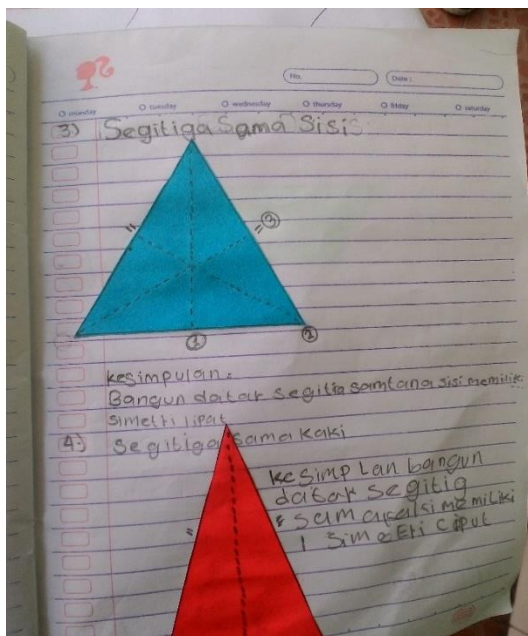 No.
Date:
monday tuesday wednesday thursday friday saturday
3) Segitiga Sama Sisis
=
=
③
① ②
kesimpulan:
Bangun datar segitia samtana sisi memilik
simetri lipat
4) Segitiga sama kaki
kesimplan bangun
datar segitig
sama memiliki
1